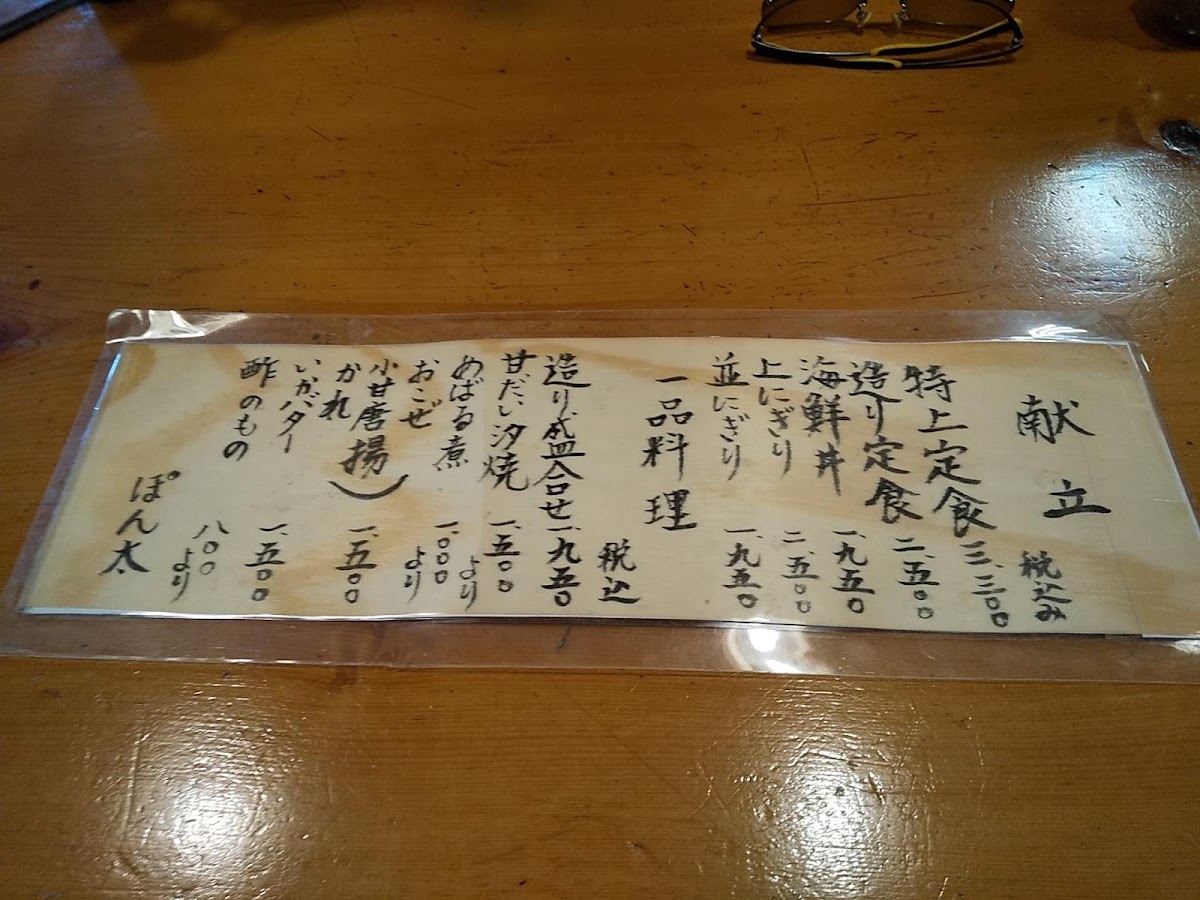 献立 税込み
特上定食 三、三〇〇
造り定食 二、五〇〇
海鮮丼 一、九五〇
上にぎり 二、五〇〇
並にぎり 一、九五〇
一品料理 税込
造り盛合せ 一、九五〇
甘だい汐焼 一、五〇〇より
めばる煮 一、〇〇〇より
おこぜ
小甘唐揚 一、五〇〇
かれ
いかバター 一、五〇〇
酢のもの 八〇〇より
ぽん太